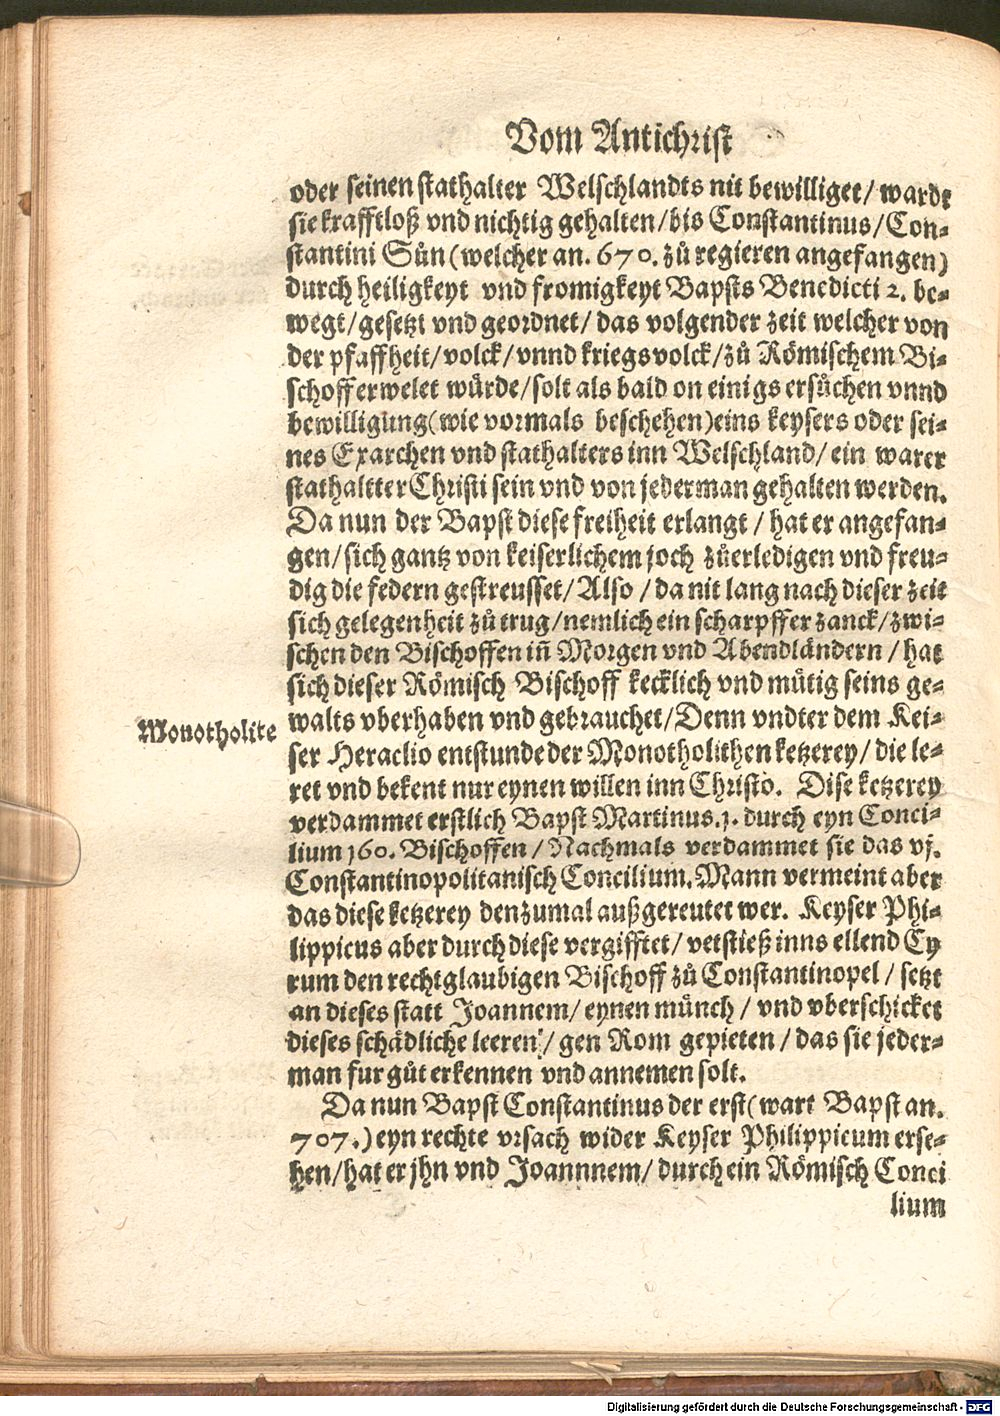 Vom Antichrist
oder seinen stathalter Welschlandts nit bewilliget/ wardt
sie krafftloß vnd nichtig gehalten/bis Constantinus/Con-
stantini Sůn (welcher an. 670. zů regieren angefangen)
durch heiligkeyt vnd fromigkeyt Bapsts Benedicti 2. be-
wegt/gesetzt vnd geordnet/ das volgender zeit welcher von
der pfaffheit/volck/vnnd kriegsvolck/zů Römischem Bi-
schoff erwelet würde/solt als bald on einigs ersůchen vnnd
bewilligung(wie vormals beschehen)eins keysers oder sei-
nes Exarchen vnd stathalters inn Welschland/ ein warer
stathaltter Christi sein vnd von jederman gehalten werden.
Da nun der Bapst diese freiheit erlangt / hat er angefan-
gen/sich gantz von keiserlichem joch zůerledigen vnd freu-
dig die federn gestreusset/ Also / da nit lang nach dieser zeit
sich gelegenheit zů trug/nemlich ein scharpffer zanck/zwi-
schen den Bischoffen iñ Morgen vnd Abendländern / hat
sich dieser Römisch Bischoff kecklich vnd mütig seins ge-
Monotholite
walts vberhaben vnd gebrauchet/Denn vndter dem Kei-
ser Heraclio entstunde der Monotholithen ketzerey/ die le-
ret vnd bekent nur eynen willen inn Christo. Dise ketzerey
verdammet erstlich Bapst Martinus.1. durch eyn Conci-
lium 160. Bischoffen / Nachmals verdammet sie das vj.
Constantinopolitanisch Concilium. Mann vermeint aber
das diese ketzerey denzumal außgereutet wer. Keyser Phi-
lippicus aber durch diese vergifftet/ vetstieß inns ellend Cy
rum den rechtglaubigen Bischoff zů Constantinopel / setzt
an dieses statt Joannem/ eynen münch / vnd vberschicket
dieses schädliche leeren / gen Rom gepieten / das sie jeder-
man fur gůt erkennen vnd annemen solt.
Da nun Bapst Constantinus der erst (wart Bapst an.
707.) eyn rechte vrsach wider Keyser Philippicum erse-
hen/hat er jhn vnd Joannnem/ durch ein Römisch Conci
lium
Digitalisierung gefördert durch die Deutsche Forschungsgemeinschaft - DFG